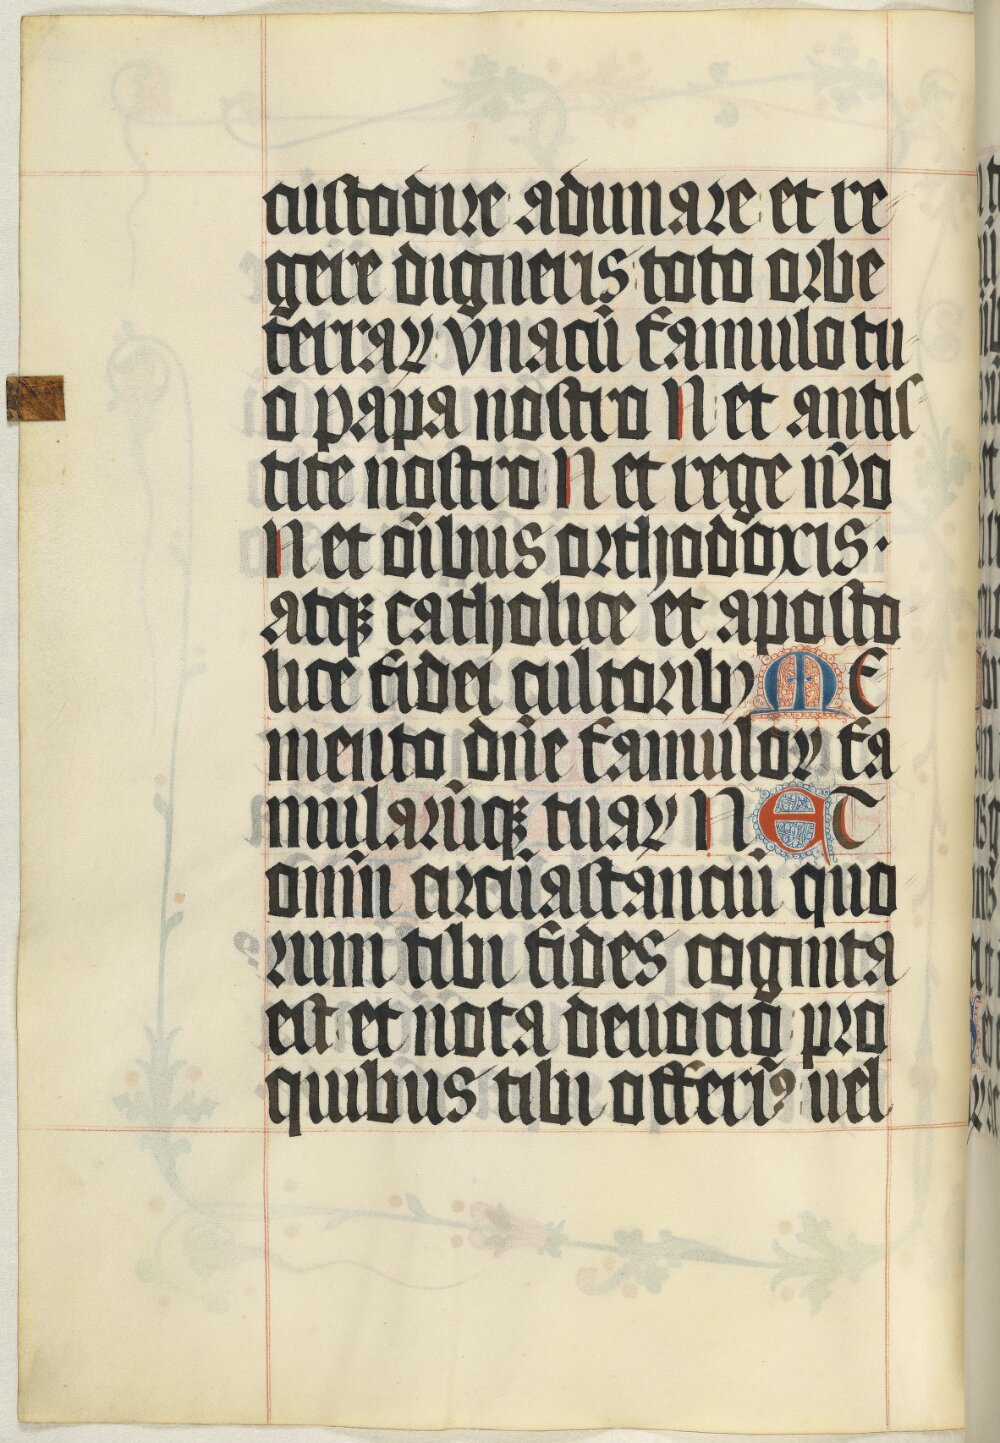 custodire adunare et re
gere digneris toto orbe
terraꝝ vnacū famulo tu
o papa nostro N et antis
tite nostro N et rege nr̄o
N et oībus orthodoxis·
atqꝫ catholice et aposto
lice fidei cultoribꝰ ME
mento dn̄e famuloꝝ fa
mularūqꝫ tuaꝝ N ET
omīn circūastanciū quo
rum tibi fides cognita
est et nota deuocio pro
quibus tibi offerīꝰ uel